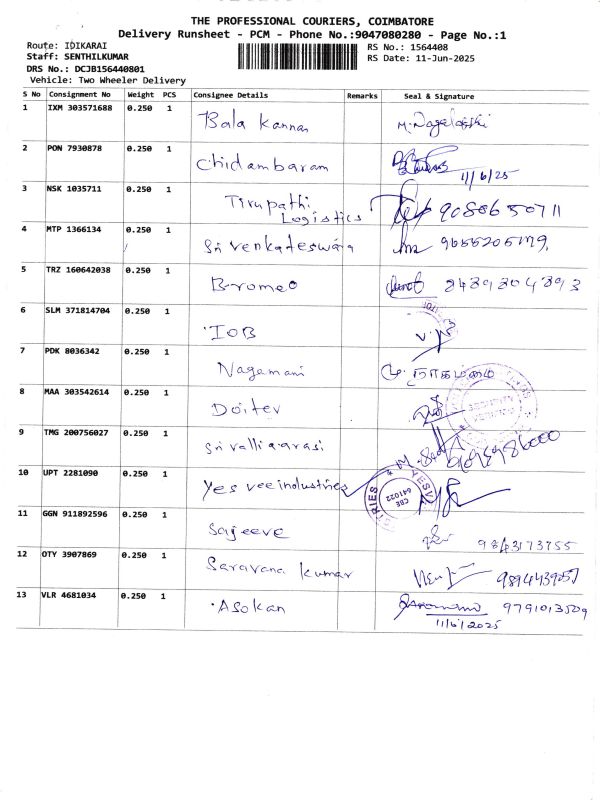 THE PROFESSIONAL COURIERS, COIMBATORE
Delivery Runsheet - PCM - Phone No.:9047080280 - Page No.:1
Route: IDIKARAI
RS No.: 1564408
Staff: SENTHILKUMAR
RS Date: 11-Jun-2025
DRS No.: DCJB156440801
Vehicle: Two Wheeler Delivery
S No Consignment No Weight PCS Consignee Details Remarks Seal & Signature
1 IXM 303571688 0.250 1 Bala Kannan
2 PON 7930878 0.250 1 Chidambaram 11/6/25
3 NSK 1035711 0.250 1 Tirupathi Logistics 9080650711
4 MTP 1366134 0.250 1 Sri venkateswara
5 TRZ 160642038 0.250 1 B-romeo
6 SLM 371814704 0.250 1 IOB
7 PDK 8036342 0.250 1 Nagamani மு. நாகமணி
8 MAA 303542614 0.250 1 Doitev
9 TMG 200756027 0.250 1 Sri valliarasi
10 UPT 2281090 0.250 1 Yes vee industries CBE 641022
11 GGN 911892596 0.250 1 Sajeeve 9843173755
12 OTY 3907869 0.250 1 Saravana Kumar 9894439057
13 VLR 4681034 0.250 1 Asokan 9791013509
11/6/2025